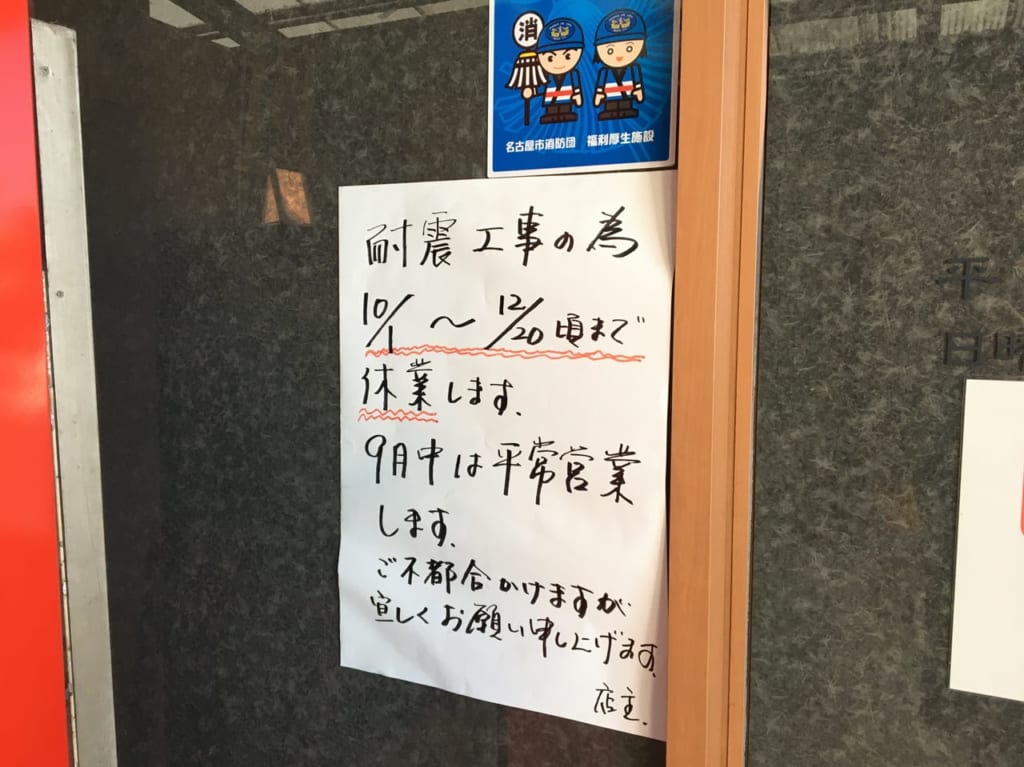 消
名古屋市消防団 福利厚生施設
耐震工事の為
10/1 〜 12/20 頃まで
休業します、
9月中は平常営業
します、
ご不都合かけますが
宜しくお願い申し上げます、
店主、
平
日曜